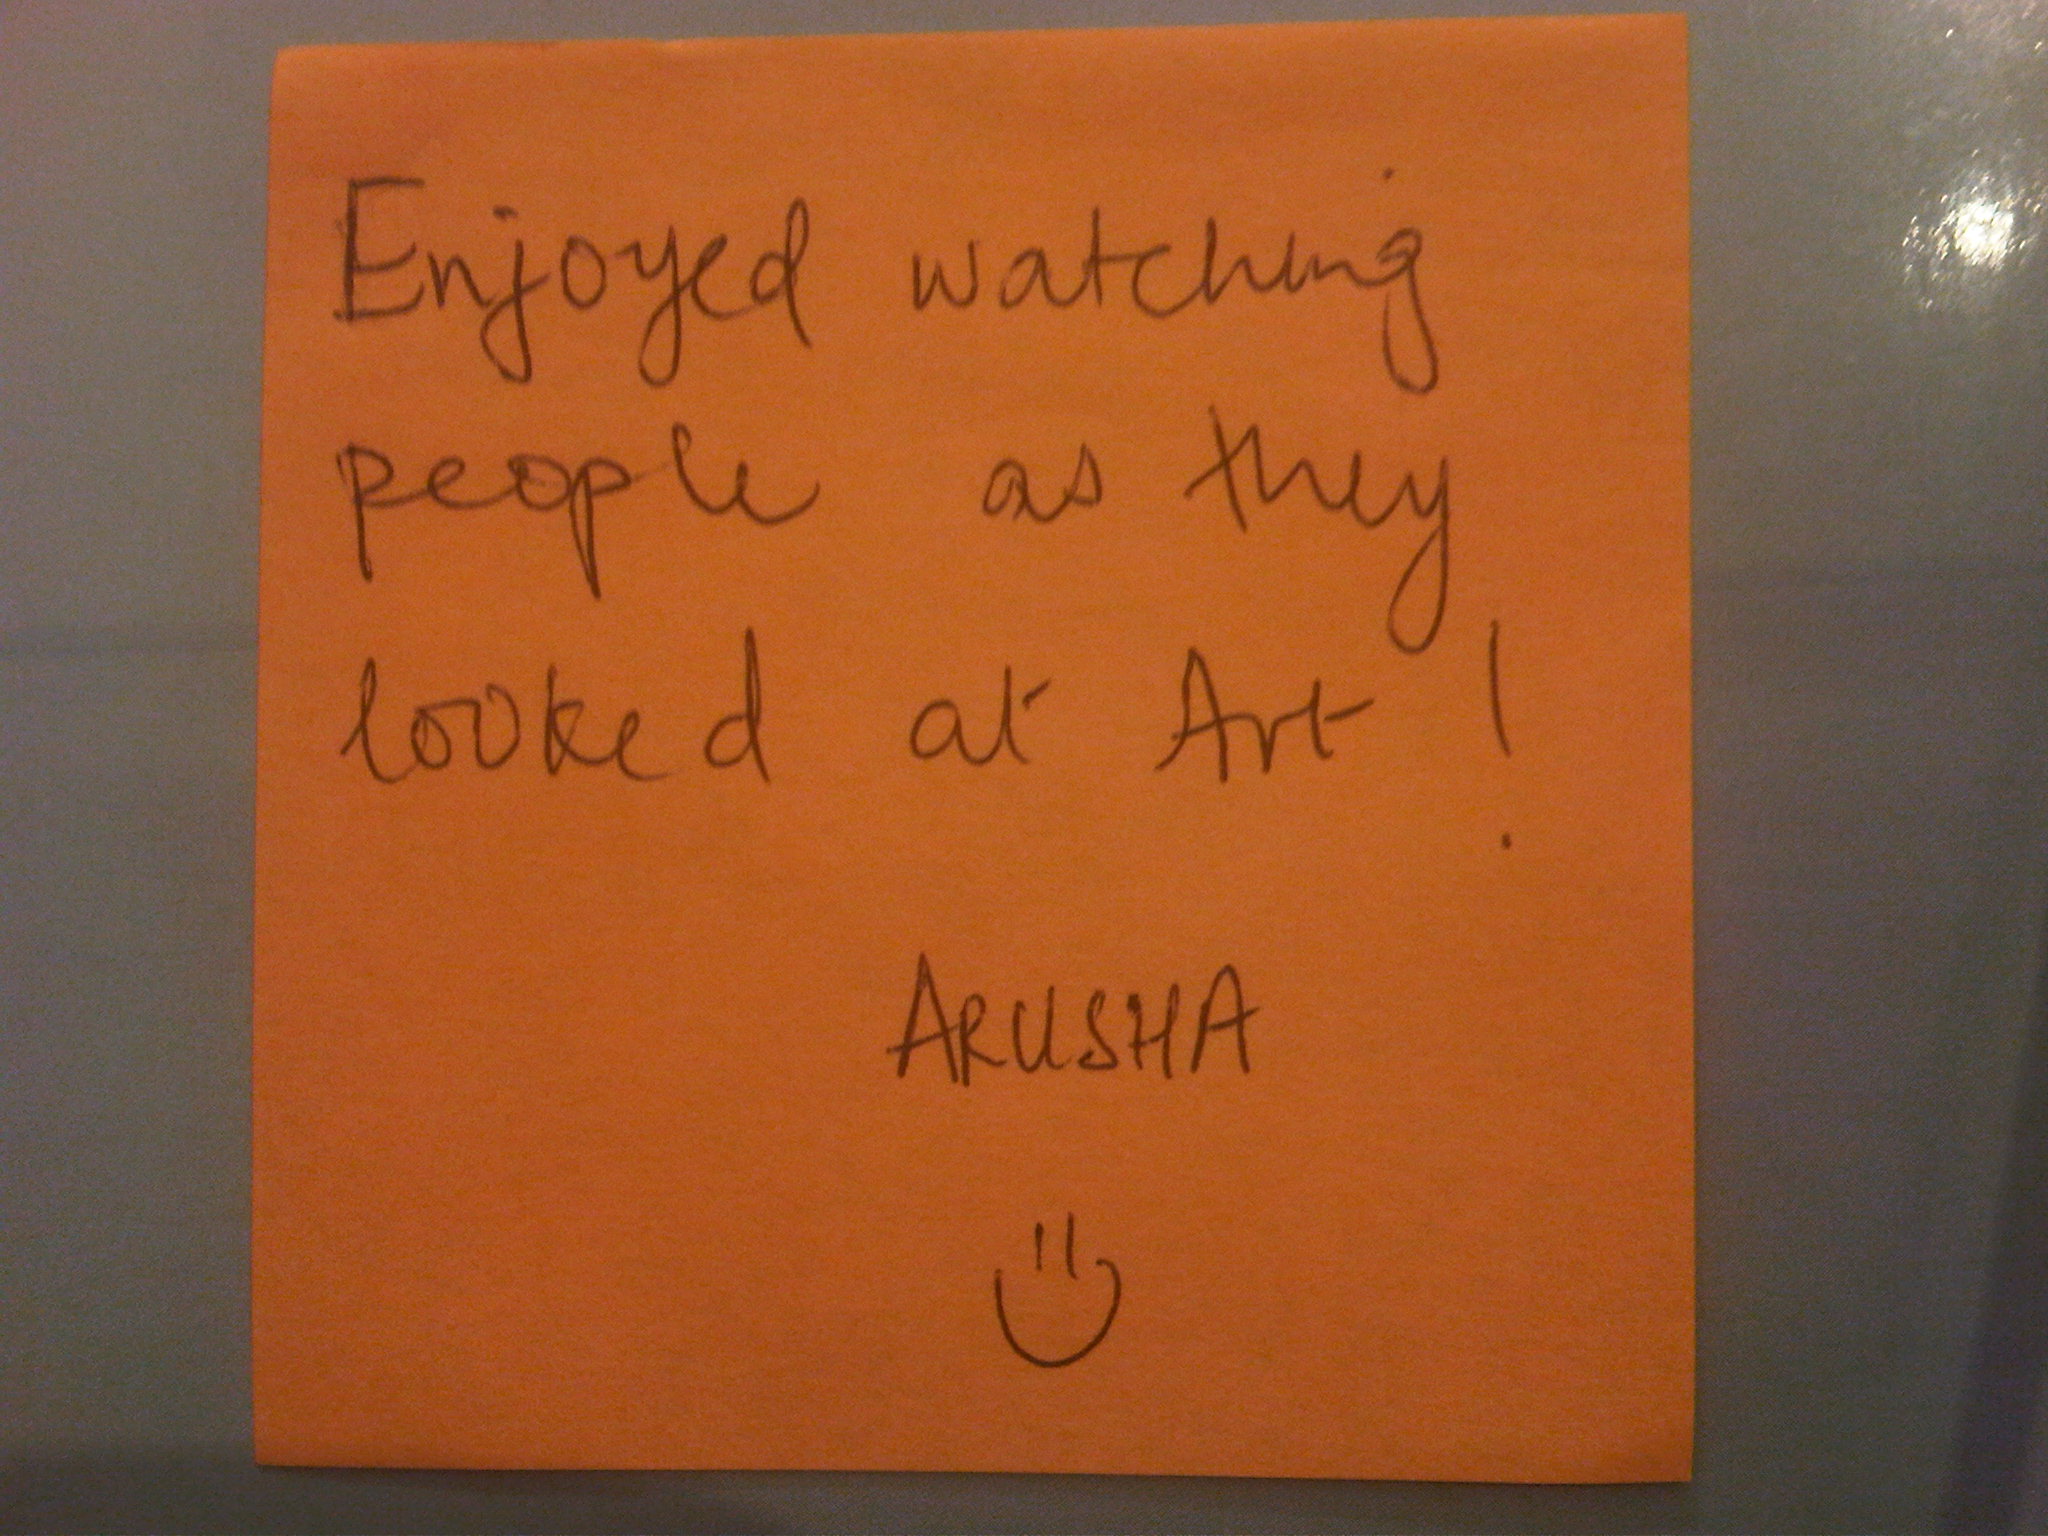 Enjoyed watching
people as they
looked at Art!
ARUSHA